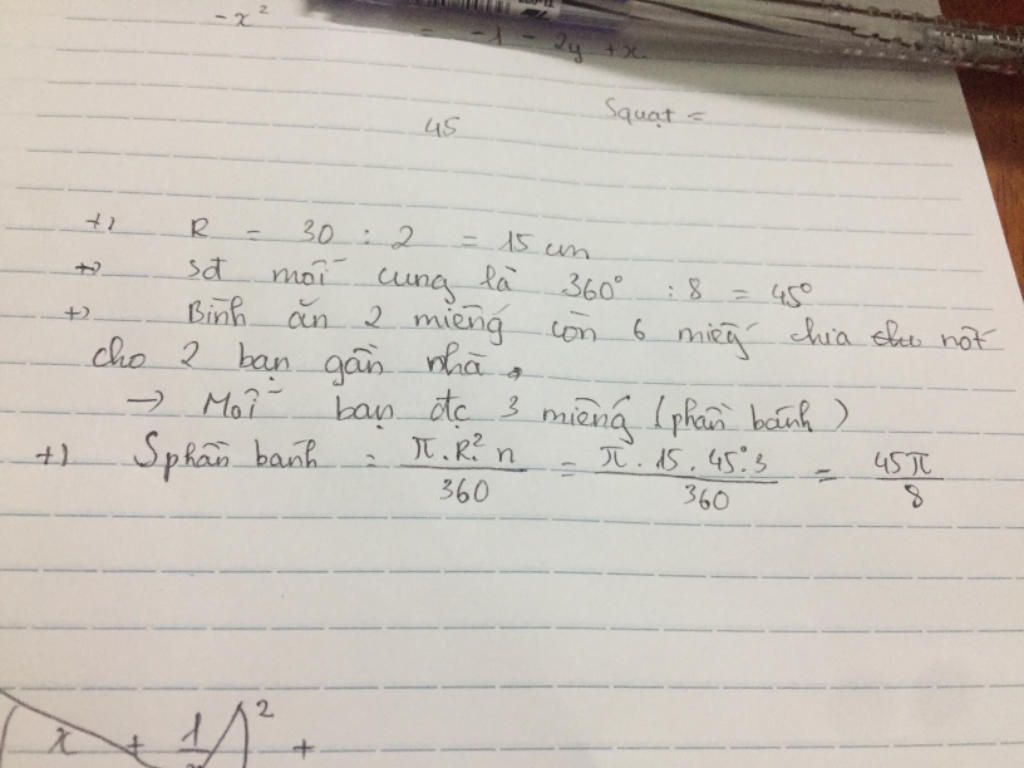 -x²
= -1 - 2y + x
Squạt =
45
+) R = 30 : 2 = 15 cm
+) sđ mỗi cung là 360° : 8 = 45°
+) Bình ăn 2 miếng còn 6 miếng chia nốt
cho 2 bạn gần nhà.
→ Mỗi bạn đc 3 miếng (phần bánh)
+) Sphần bánh = π.R².n / 360 = π.15.45°.3 / 360 = 45π / 8
(x + 1/)² +